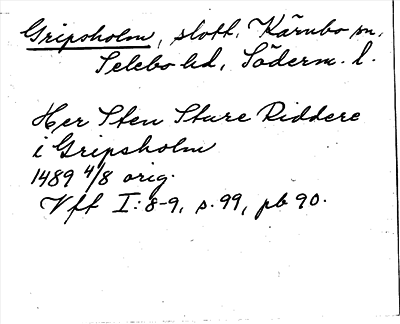 Gripsholm, slott. Kärnbo sn,
Selebo hd, Söderm. l.
Her Sten Sture Riddere
i Gripsholm
1489 4/8 orig.
Vff I: 8-9, s. 99, pb 90.